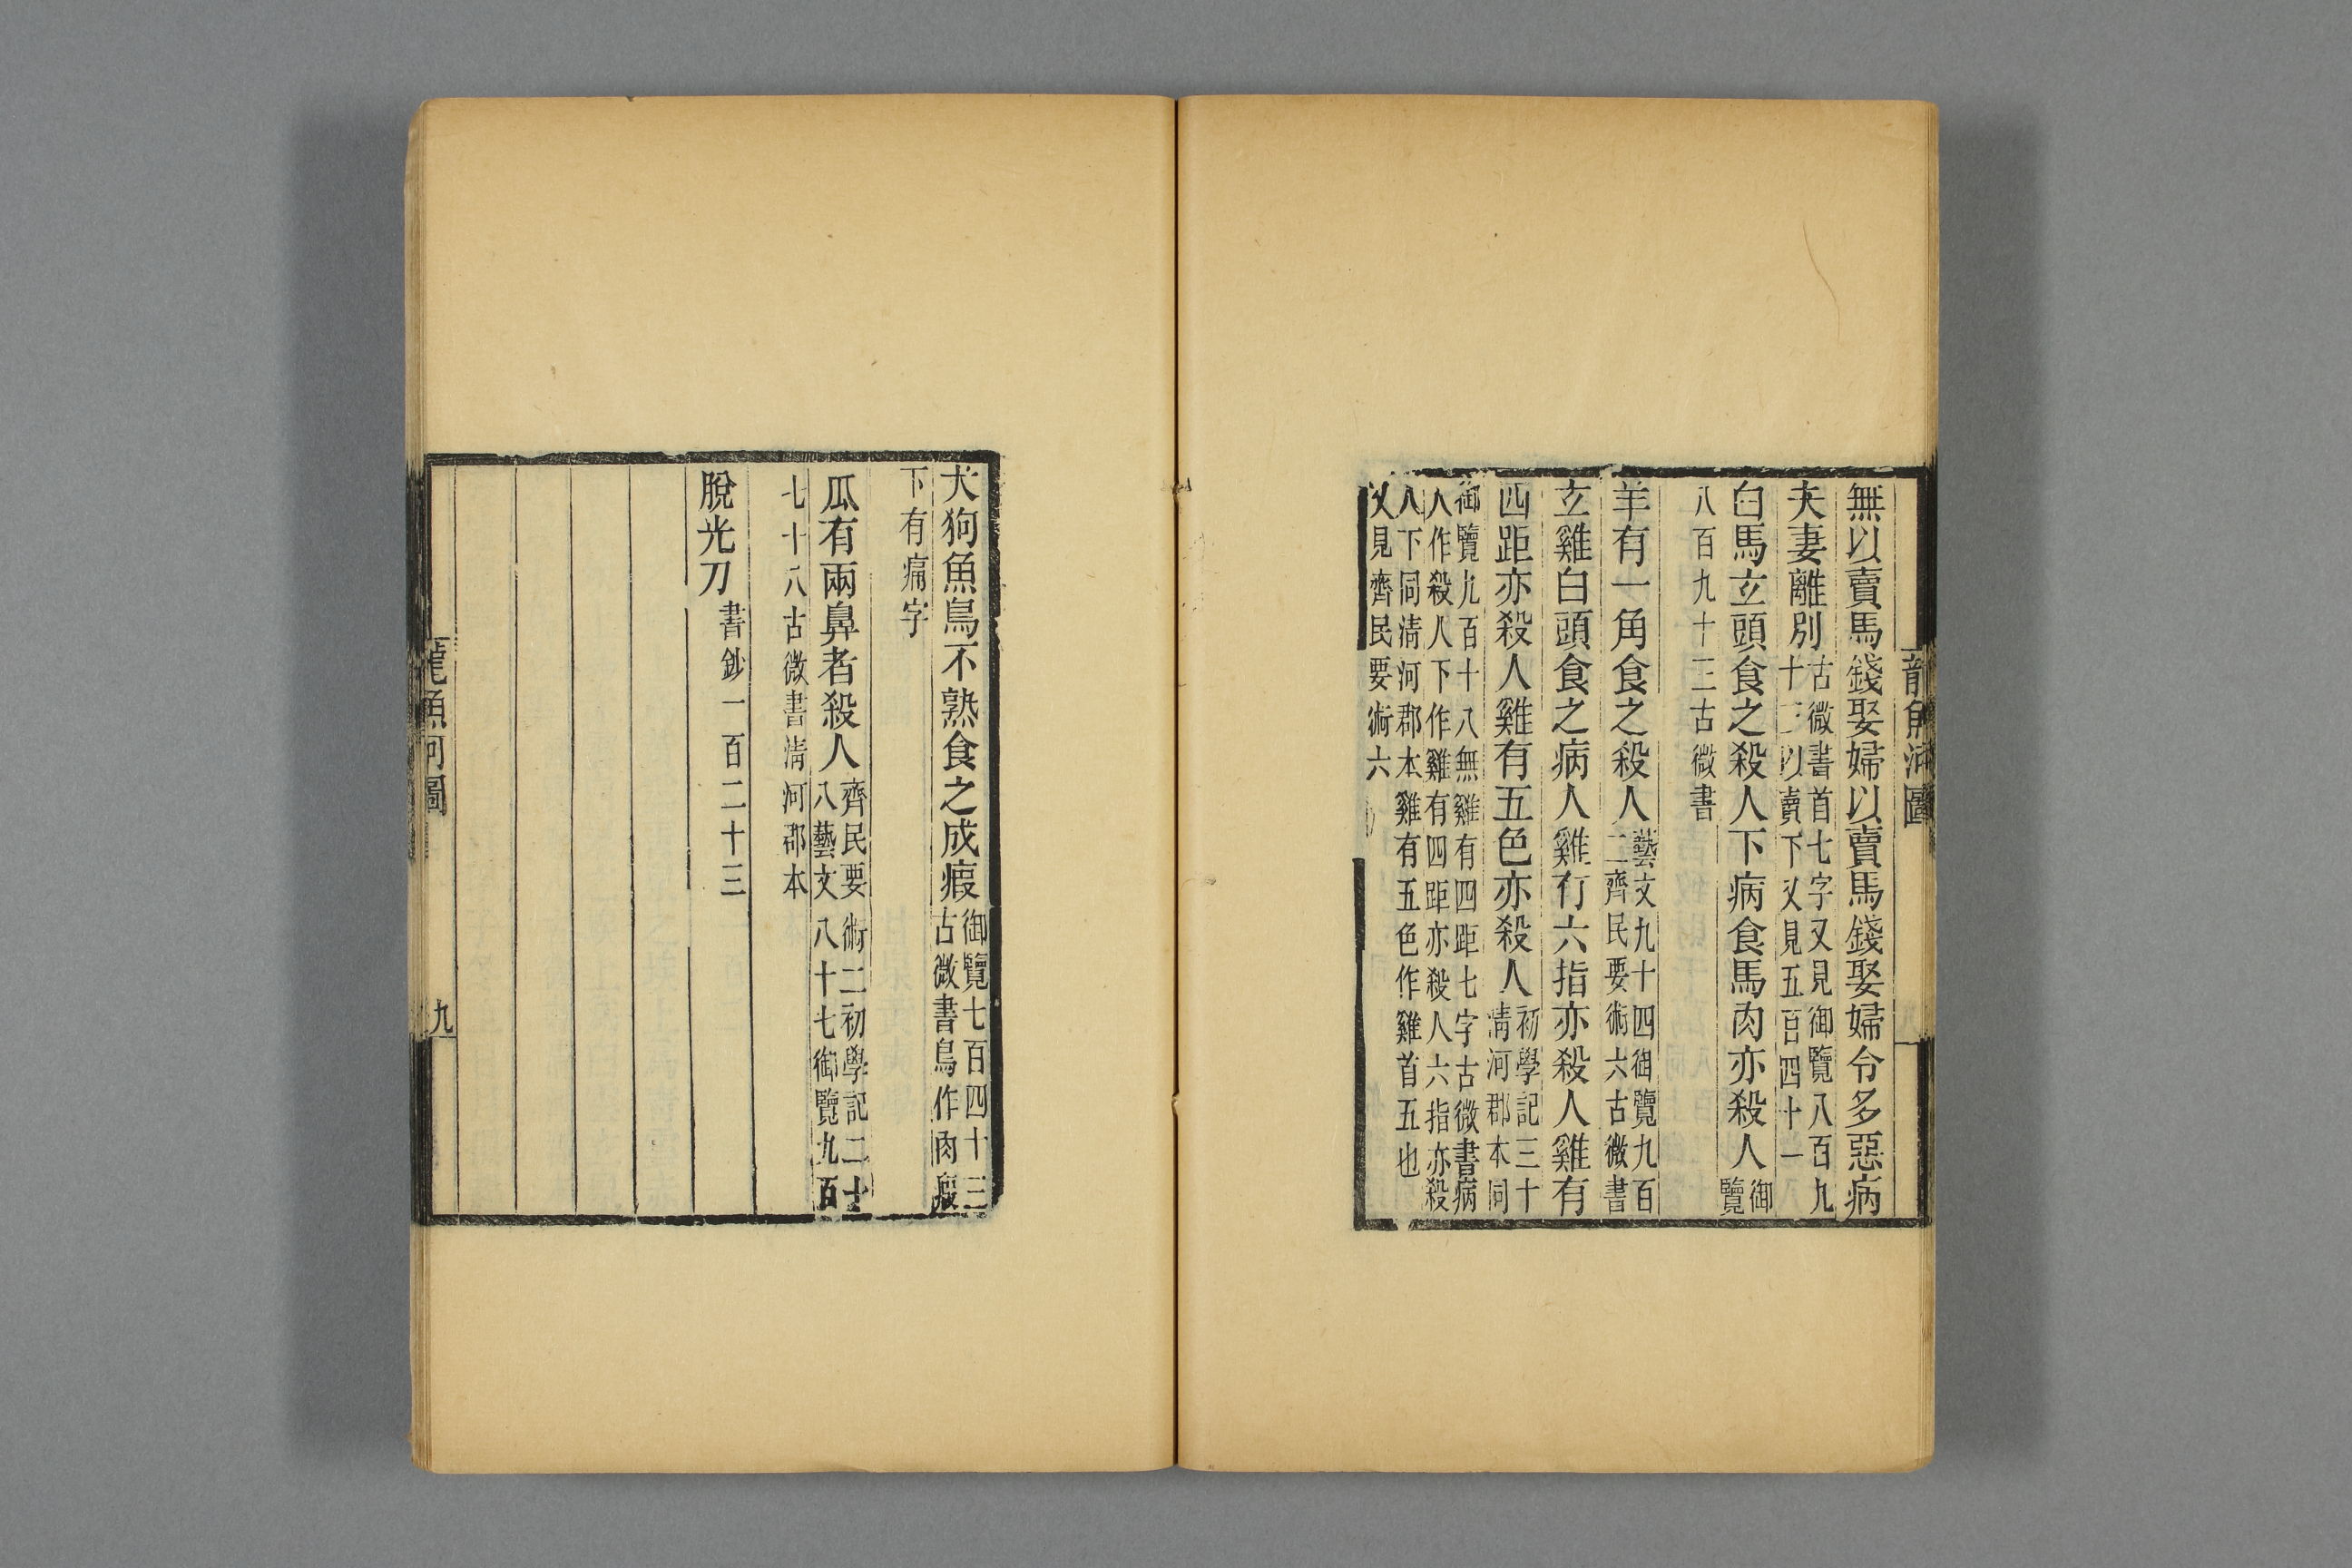 龍魚河圖
無以賣馬錢娶婦以賣馬錢娶婦令多惡病
夫妻離別古微書首七字又見御覽八百九
十三以賣下又見五百四十一
白馬玄頭食之殺人下病食馬肉亦殺人御
覽
八百九十三古微書
羊有一角食之殺人藝文九十四御覽九百
二齊民要術六古微書
玄雞白頭食之病人雞有六指亦殺人雞有
四距亦殺人雞有五色亦殺人初學記三十
清河郡本同
御覽九百十八無雞有四距七字古微書病
人作殺人下作雞有四距亦殺人六指亦殺
人下同清河郡本雞有五色作雞首五也
又見齊民要術六
犬狗魚鳥不熟食之成瘕御覽七百四十三
古微書鳥作肉瘕
下有痛字
瓜有兩鼻者殺人齊民要術二初學記二十
八藝文八十七御覽九百
七十八古微書清河郡本
脫光刀書鈔一百二十三
龍魚河圖
九